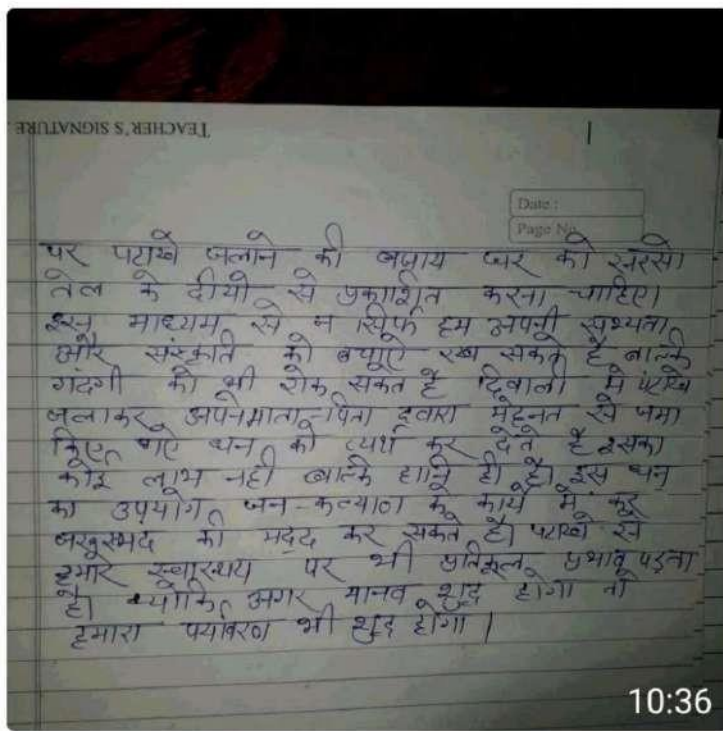 TEACHER'S SIGNATURE
Date :
Page No.
पर पटाखे जलाने की बजाय घर को सरसो
तेल के दीयो से प्रकाशित करना चाहिए।
इस माध्यम से न सिर्फ हम अपनी सभ्यता
और संस्कृति को बचाए रख सकते है बल्कि
गंदगी को भी रोक सकते है दिवाली मे पटाखे
जलाकर अपने माता-पिता द्वारा मेहनत से जमा
किए गए धन को व्यर्थ कर देते है इसका
कोई लाभ नही बल्कि हानि ही है। इस धन
का उपयोग जन-कल्याण के कार्य में कर
जरूरतमंद की मदद कर सकते है। पटाखे से
हमारे स्वास्थय पर भी प्रतिकूल प्रभाव पड़ता
है। क्योकि अगर मानव शुद्ध होगा तो
हमारा पर्यावरण भी शुद्ध होगा |
10:36